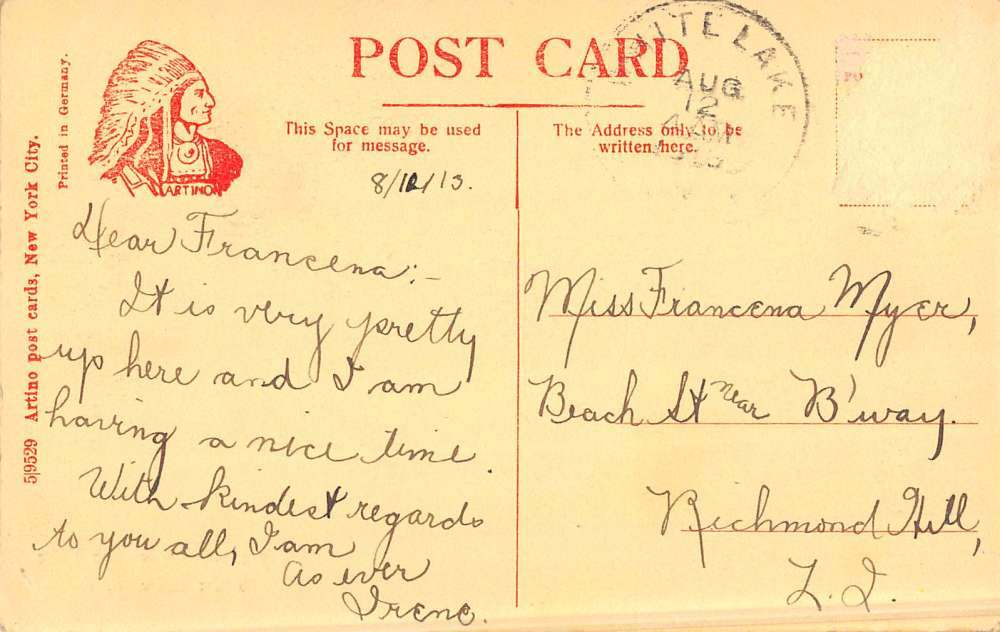 POST CARD
This Space may be used
for message.
The Address only to be
written here.
WHITE LAKE
AUG
12
PO
Printed in Germany.
5|9529 Artino post cards, New York City.
ARTINO
8/12/13.
Dear Francena:-
It is very pretty
up here and I am
having a nice time.
With kindest regards
to you all, I am
As ever
Irene.
Miss Francena Myer,
Beach St near B'way.
Richmond Hill,
L. I.